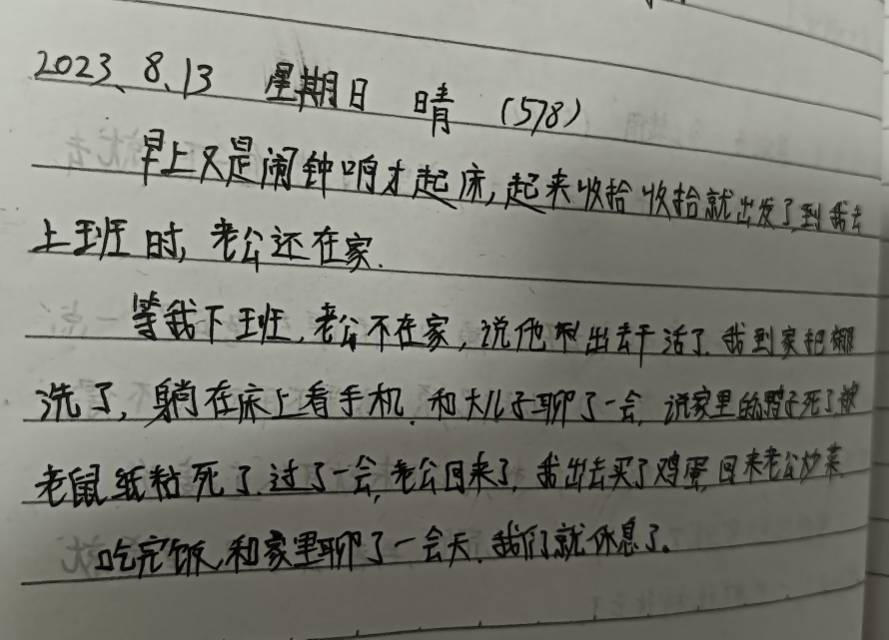 2023、8、13 星期日 晴 (578)
早上又是闹钟响才起床,起来收拾收拾就出发了,到我去
上班时,老公还在家.
等我下班,老公不在家,说他出去干活了.我到家把
洗了,躺在床上看手机.和大儿子聊了一会,说家里的鸭子死了,被
老鼠纸粘死了.过了一会,老公回来了,我出去买了鸡蛋,回来老公炒菜.
吃完饭,和家里聊了一会天.我们就休息了。